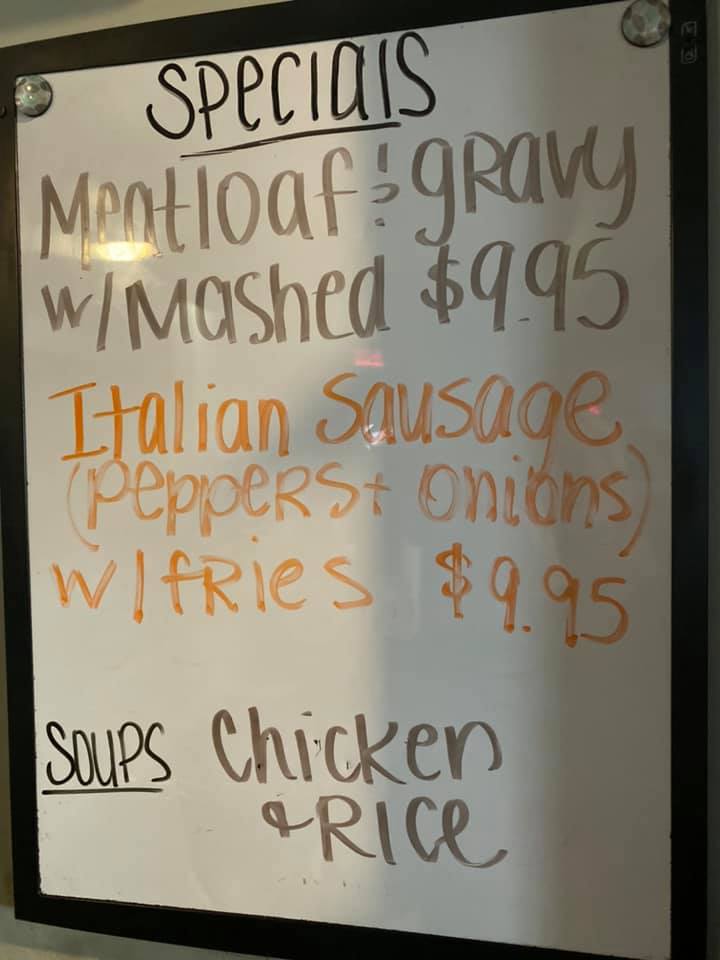 Specials
Meatloaf & gravy
w/Mashed $9.95
Italian Sausage
(Peppers + Onions)
w/fries $9.95
Soups Chicken
& Rice